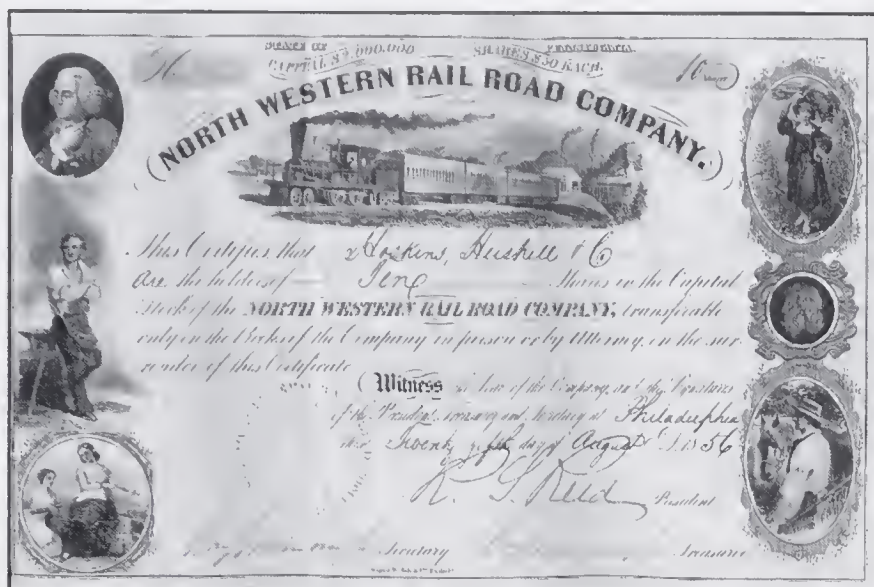 STATE OF PENNSYLVANIA.
CAPITAL $ ,000,000 SHARES $50 EACH.
10 Shares
NORTH WESTERN RAIL ROAD COMPANY.
This Certifies that Hoskins, & C
Are the holders of Ten Shares in the Capital
Stock of the NORTH WESTERN RAIL ROAD COMPANY, transferable
only in the Books of the Company in person or by Attorney, on the sur-
render of this Certificate
Witness the Seal of the Company, and the Signatures
of the President, and Secretary at Philadelphia
this Twenty fifth day of August A.D. 1856
R. Reed President
Secretary Treasurer